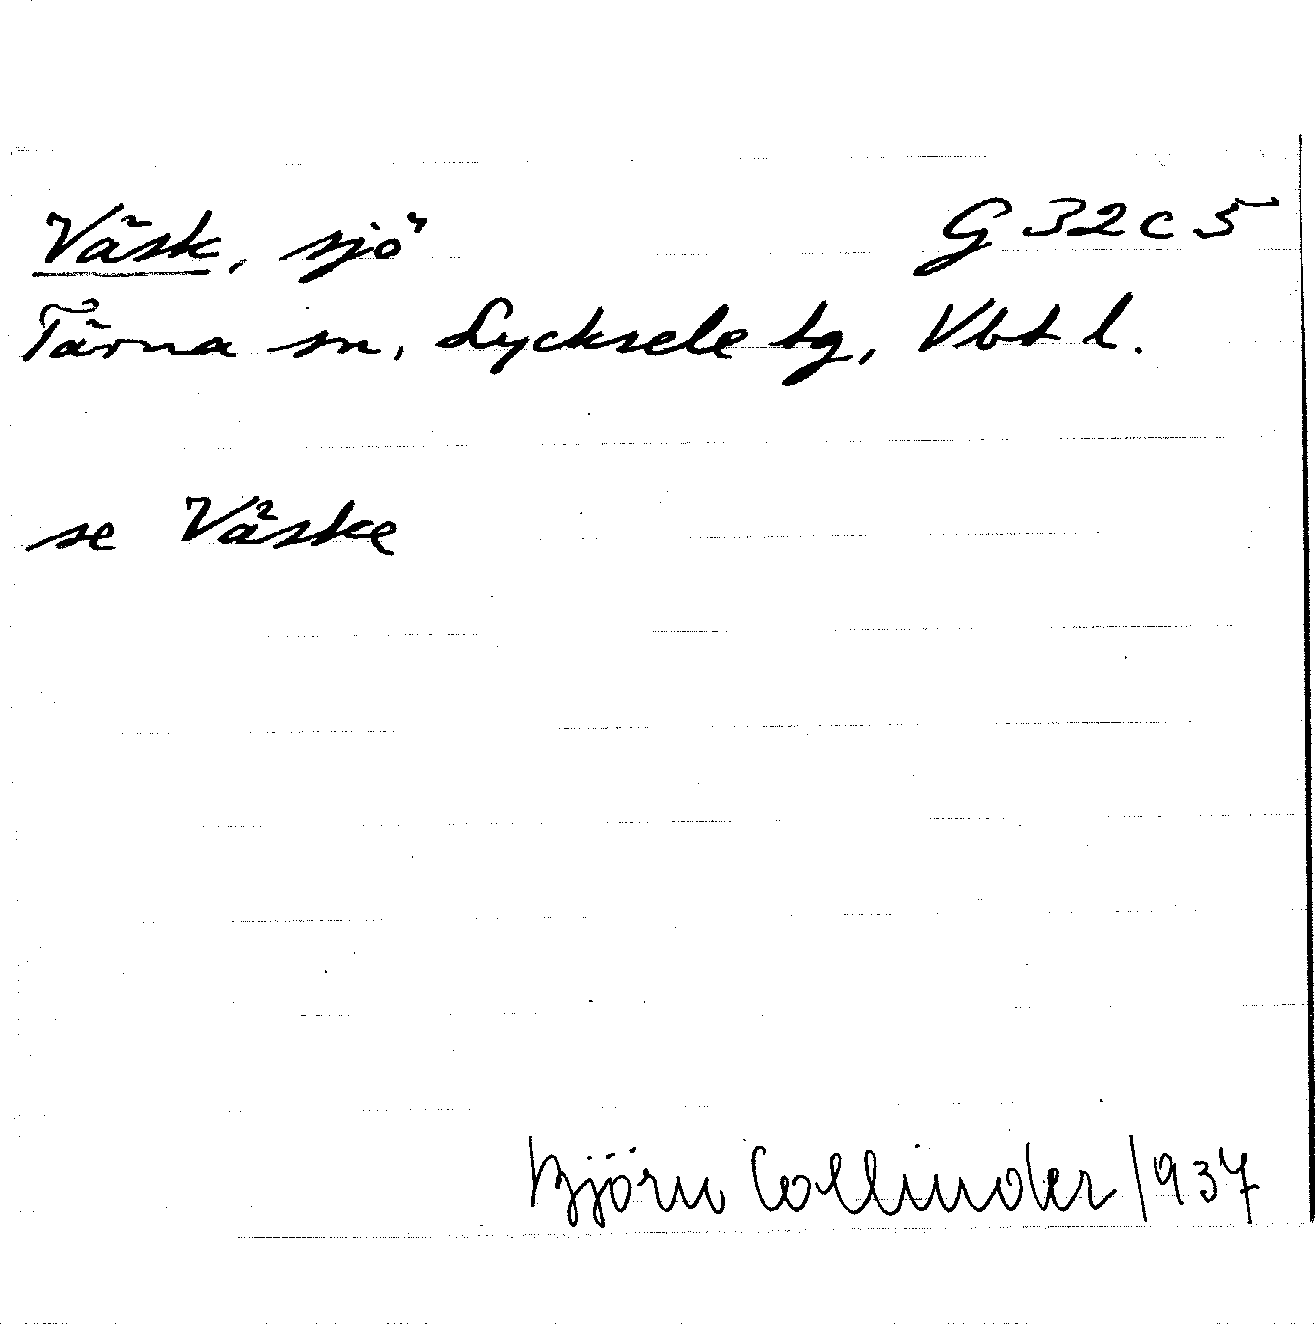 Väsk, sjö G 32 c 5
Tärna sn, Lycksele tg, Vbt l.
se Väske
Björn Collinder 1937